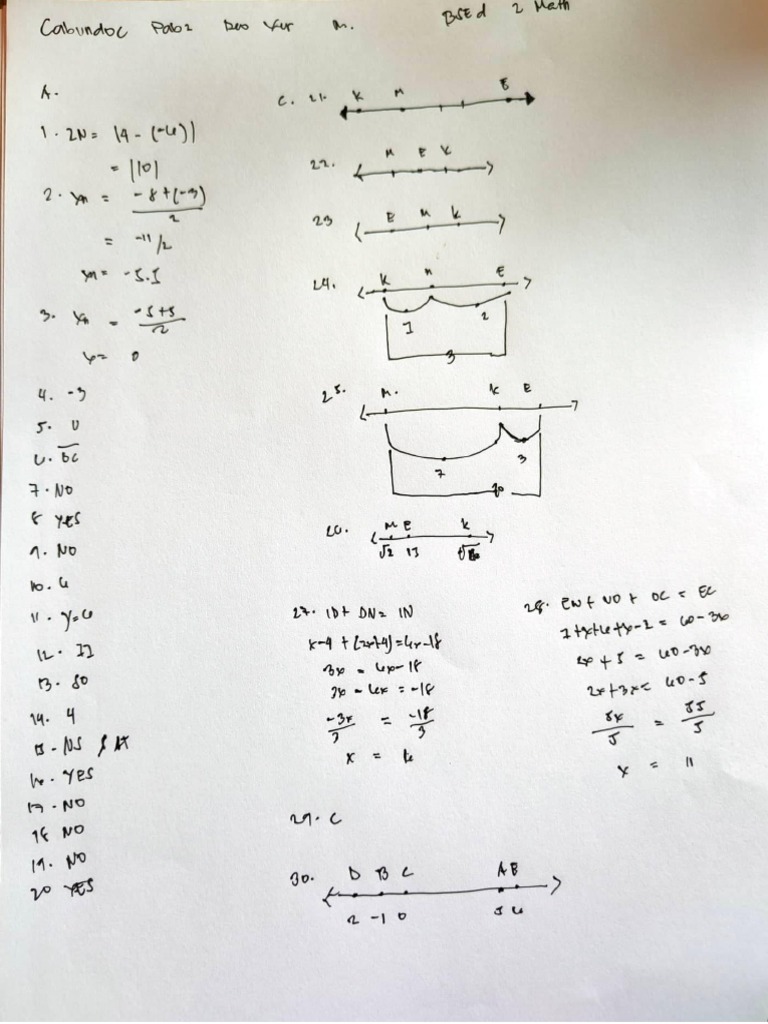 Cabundoc
BSEd 2 Math
A.
1. 2N = |4 - (-6)|
= |10|
2. Xm = -8+(-3)
2
= -11/2
Xm = -5.5
3. Xm = -5+5
2
X = 0
4. -3
5. 0
6. DC
7. NO
8 YES
9. NO
10. 6
11. y=6
12. 11
13. 50
14. 4
15. NS & AT
16. YES
17. NO
18 NO
19. NO
20 YES
C. 21. K M E
22. M E K
23 E M K
24. K M E
1 2
3
25. M. K E
7 3
10
26. M E K
√2 13
27. ID + DN = IN
x-4 + (2x+4) = 6x-18
3x = 6x-18
3x - 6x = -18
-3x = -18
3 3
x = 6
28. EN + NO + OC = EC
2x + 5 = 60-3x
2x+3x = 60-5
5x = 55
5 5
x = 11
29. C
30. D B C A E
2 -1 0 5 6